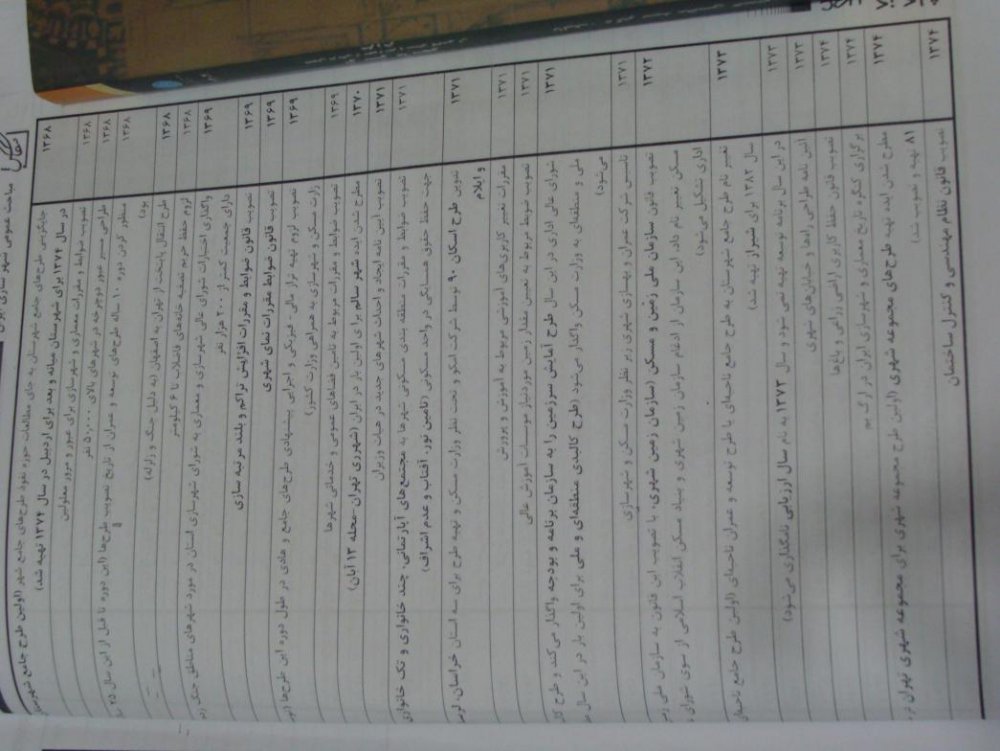 مباحث عمومی شهر سازی ایران
۱۳۶۸ جایگزینی طرح‌های جامع شهرستان به جای مطالعات حوزه نفوذ طرح‌های جامع شهر (اولین طرح جامع شهرستان
در سال ۱۳۷۴ برای شهرستان میانه و بعد برای اردبیل در سال ۱۳۷۴ تهیه شد)
۱۳۶۸ تصویب ضوابط و مقررات معماری و شهرسازی برای عبور و مرور معلولین
۱۳۶۸ طراحی مسیر عبور دوچرخه در شهرهای بالای ۵۰,۰۰۰ نفر
۱۳۶۸ منظور کردن دوره ۱۰ ساله طرح‌های توسعه و عمران از تاریخ تصویب طرح‌ها (این دوره تا قبل از این سال ۲۵
بود)
۱۳۶۸ طرح انتقال پایتخت از تهران به اصفهان (به دلیل جنگ و زلزله)
۱۳۶۸ لزوم حفظ حریم تصفیه خانه‌های فاضلاب تا ۶ کیلومتر
۱۳۶۹ واگذاری اختیارات شورای عالی شهرسازی و معماری به شورای شهرسازی استان در مورد شهرهای مناطق جنگ
دارای جمعیت کمتر از ۲۰۰ هزار نفر
۱۳۶۹ تصویب قانون ضوابط و مقررات افزایش تراکم و بلند مرتبه سازی
۱۳۶۹ تصویب قانون ضوابط مقررات نمای شهری
۱۳۶۹ تصویب لزوم تهیه تراز مالی، فیزیکی و اجرایی پیشنهادی طرح‌های جامع و هادی در طول دوره این طرح‌ها
زارت مسکن و شهرسازی به همراهی وزارت کشور)
۱۳۶۹ تصویب ضوابط و مقررات مربوط به تامین فضاهای عمومی و خدماتی شهرها
۱۳۷۰ مطرح شدن ایده شهر سالم برای اولین بار در ایران (شهرری تهران محله ۱۳ آبان)
۱۳۷۱ تصویب آیین نامه ایجاد و احداث شهرهای جدید در هیات وزیران
۱۳۷۱ تصویب ضوابط و مقررات منطقه بندی مسکونی شهرها به مجتمع‌های آپارتمانی، چند خانواری و تک خانواری
جهت حفظ حقوق همسایگی در واحد مسکونی (تامین نور، آفتاب و عدم اشراف)
۱۳۷۱ تدوین طرح اسکان ۹۰ توسط شرکت اسکو و تحت نظر وزارت مسکن و تهیه طرح برای سه استان خراسان، لرستان
و ایلام
۱۳۷۱ مقررات تغییر کاربری‌های آموزشی مربوط به آموزش و پرورش
۱۳۷۱ تصویب ضوابط مربوط به تعیین مقدار زمین موردنیاز موسسات آموزش عالی
۱۳۷۱ شورای عالی اداری در این سال طرح آمایش سرزمین را به سازمان برنامه و بودجه واگذار می‌کند و طرح
ملی و منطقه‌ای به وزارت مسکن واگذار می‌شود (طرح کالبدی منطقه‌ای و ملی برای اولین بار در این سال
می‌شود)
۱۳۷۱ تاسیس شرکت عمران و بهسازی شهری زیر نظر وزارت مسکن و شهرسازی
۱۳۷۲ تصویب قانون سازمان ملی زمین و مسکن (سازمان زمین شهری، با تصویب این قانون به سازمان ملی زمین و
مسکن تغییر نام داد، این سازمان از ادغام سازمان زمین شهری و بنیاد مسکن انقلاب اسلامی از سوی شورای
اداری تشکیل می‌شود)
۱۳۷۳ تغییر نام طرح جامع شهرستان به طرح جامع ناحیه‌ای یا طرح توسعه و عمران ناحیه‌ای (اولین طرح جامع ناحیه‌ای
سال ۱۳۸۲ برای شیراز تهیه شد)
۱۳۷۳ در این سال برنامه توسعه تهیه نمی شود و سال ۱۳۷۳ به نام سال ارزیابی نامگذاری می‌شود)
۱۳۷۳ آئین نامه طراحی راه‌ها و خیابان‌های شهری
۱۳۷۴ تصویب قانون حفظ کاربری اراضی زراعی و باغ‌ها
۱۳۷۴ برگزاری کنگره تاریخ معماری و شهرسازی ایران در ارگ بم
۱۳۷۴ مطرح شدن ایده تهیه طرح‌های مجموعه شهری (اولین طرح مجموعه شهری برای مجموعه شهری تهران در
۸۱ تهیه و تصویب شد)
۱۳۷۴ تصویب قانون نظام مهندسی و کنترل ساختمان